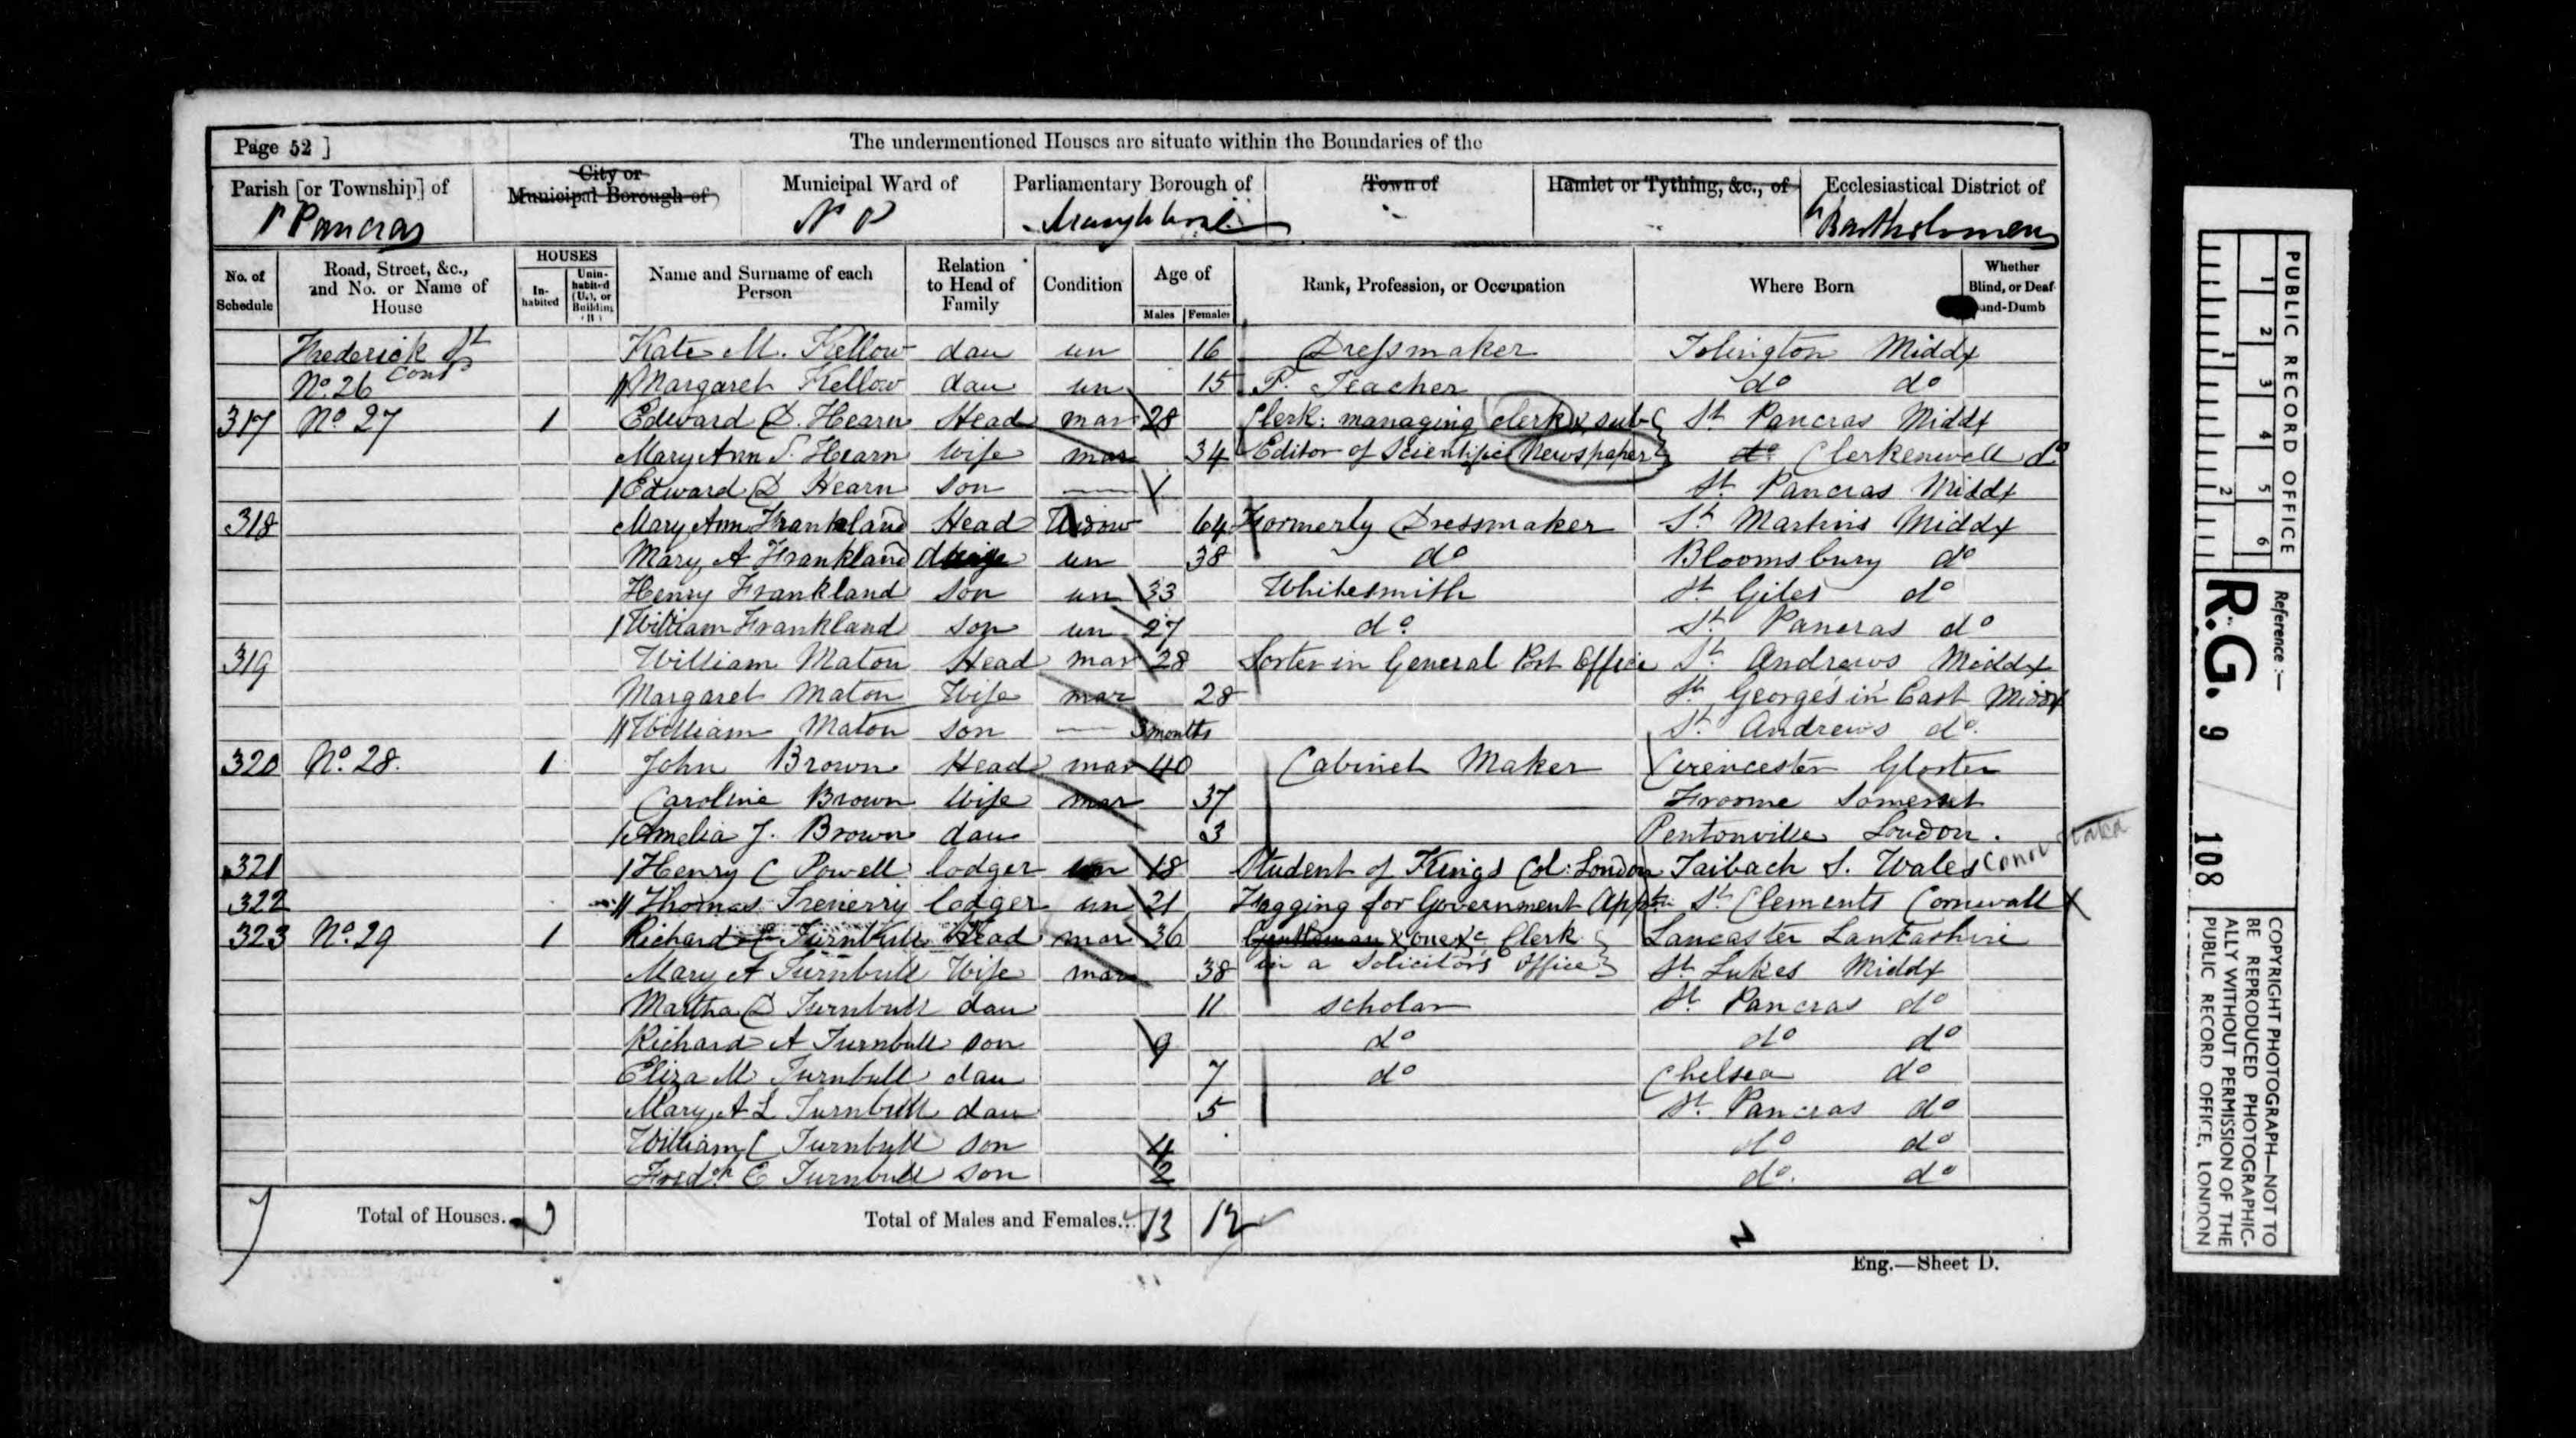 Page 52 ]
The undermentioned Houses are situate within the Boundaries of the
Parish [or Township] of
City or Municipal Borough of
Municipal Ward of
Parliamentary Borough of
Town of
Hamlet or Tything, &c., of
Ecclesiastical District of
Pancras
Bartholomew
No. of Schedule
Road, Street, &c., and No. or Name of House
HOUSES
In-habited
Unin-habited (U.), or Building (B)
Name and Surname of each Person
Relation to Head of Family
Condition
Age of
Males
Females
Rank, Profession, or Occupation
Where Born
Whether Blind, or Deaf-and-Dumb
Frederick St Kate M. Kellow dau un 16 Dressmaker Islington Middx
No. 26 Cont Margaret Kellow dau un 15 P. Teacher do do
317 No 27 1 Edward D. Hearn Head mar 28 Clerk: managing clerk & sub- St Pancras Middx
Mary Ann S. Hearn Wife mar 34 Editor of Scientific Newspaper do Clerkenwell do
Edward D Hearn son 1 St Pancras Middx
318 Mary Ann Frankland Head Widow 64 Formerly Dressmaker St Martins Middx
Mary A Frankland un 38 do Bloomsbury do
Henry Frankland son un 33 Whitesmith St Giles do
William Frankland son un 27 do St Pancras do
319 William Maton Head mar 28 Sorter in General Post Office St Andrews Middx
Margaret Maton Wife mar 28 St George's in East Middx
William Maton son 3 months St Andrews do
320 No. 28. 1 John Brown Head mar 40 Cabinet Maker Cirencester Gloster
Caroline Brown Wife mar 37 Froome Somerset
Amelia J. Brown dau 3 Pentonville London.
321 Henry C Powell lodger un 18 Student of Kings Col: London Taibach S. Wales
322 Thomas Trenerry lodger un 21 for Government St Clements Cornwall
323 No. 29 1 Richard C Turnbull Head mar 36 Gentleman Clerk Lancaster Lancashire
Mary A Turnbull Wife mar 38 in a Solicitors office St Lukes Middx
Martha D Turnbull dau 11 scholar St Pancras do
Richard A Turnbull son 9 do do do
Eliza M Turnbull dau 7 do Chelsea do
Mary A L Turnbull dau 5 St Pancras do
William C Turnbull son 4 do do
Fredk C Turnbull son 2 do. do
Total of Houses..
Total of Males and Females... 13 12
Eng.—Sheet D.
PUBLIC RECORD OFFICE
1 2 3 4 5 6
1 2
Reference :—
R.G. 9 108
COPYRIGHT PHOTOGRAPH—NOT TO
BE REPRODUCED PHOTOGRAPHIC-
ALLY WITHOUT PERMISSION OF THE
PUBLIC RECORD OFFICE, LONDON